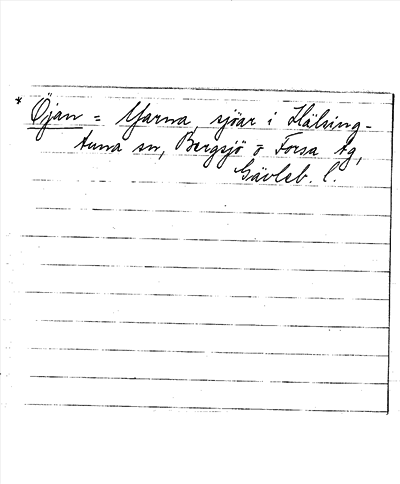 * Öjan = Yarna, sjöar i Hälsing-
tuna sn, Bergsjö o Forsa tg,
Gävleb. l.